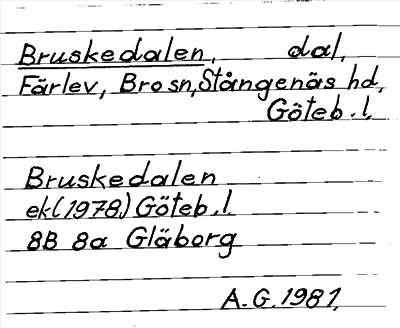 Bruskedalen, dal,
Färlev, Brosn, Stångenäs hd,
Göteb.l.
Bruskedalen
ek(1978) Göteb.l.
8B 8a Gläborg
A.G.1981,